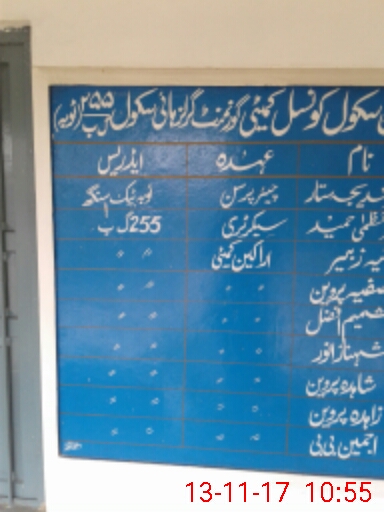 سکول کونسل کمیٹی گورنمنٹ گرلز ہائی سکول ۲۵۵ گ ب (ٹوبہ)
نام عہدہ ایڈریس
چیئرپرسن ٹوبہ ٹیک سنگھ
حمید سیکرٹری 255 گ ب
اراکین کمیٹی 〃 〃
صفیہ پروین 〃 〃 〃 〃
شمیم افضل 〃 〃 〃 〃
شہناز انور 〃 〃 〃 〃
شاہدہ پروین 〃 〃 〃 〃
زاہدہ پروین 〃 〃 〃 〃
بی بی 〃 〃 〃 〃
13-11-17 10:55